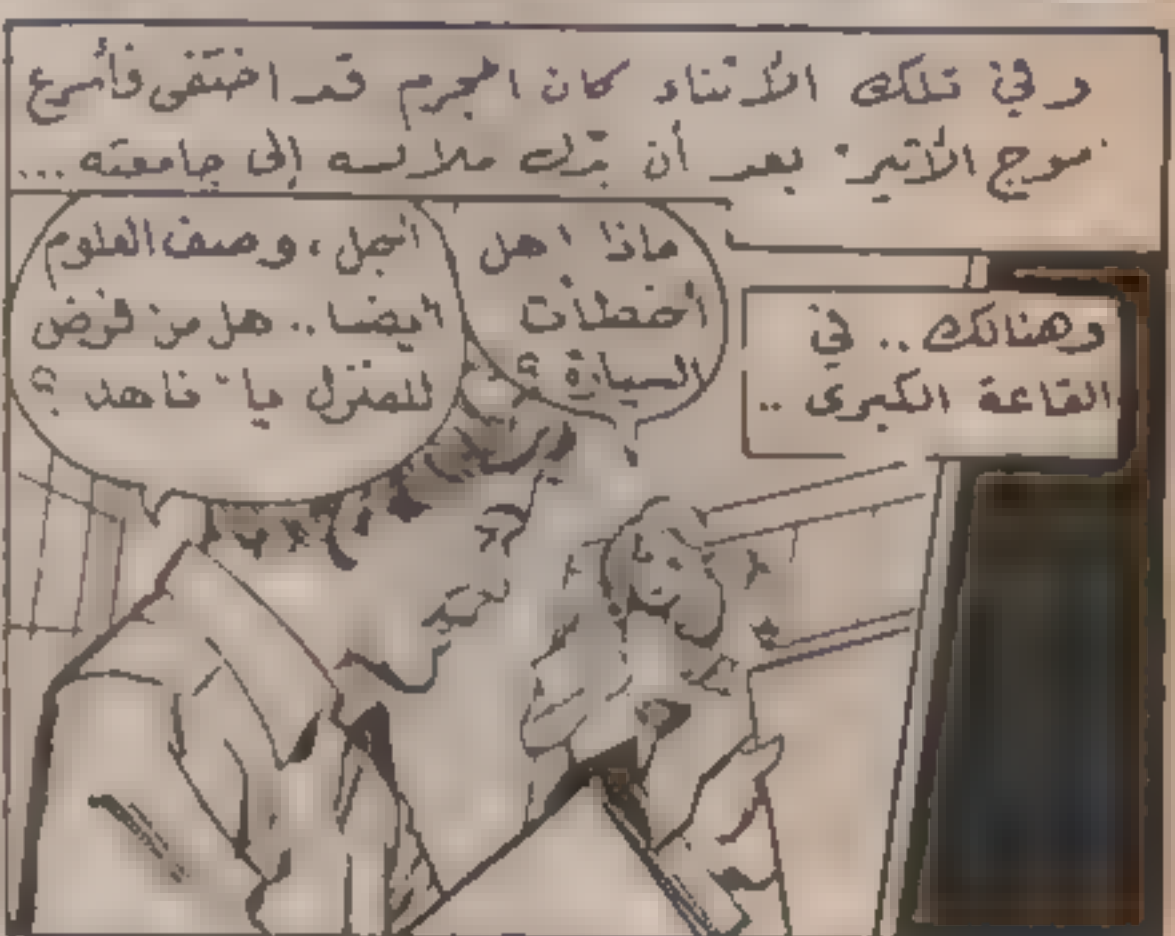 وفي تلك الأثناء كان المجرم قد اختفى فأسرع
"موج الأثير" بعد أن بدّل ملابسه إلى جامعته ...
وهنالك .. في
القاعة الكبرى ..
ماذا ! هل
أخطأت
السيارة ؟
أجل ، وصف العلوم
أيضا .. هل من فرض
للمنزل يا " ناهد ؟